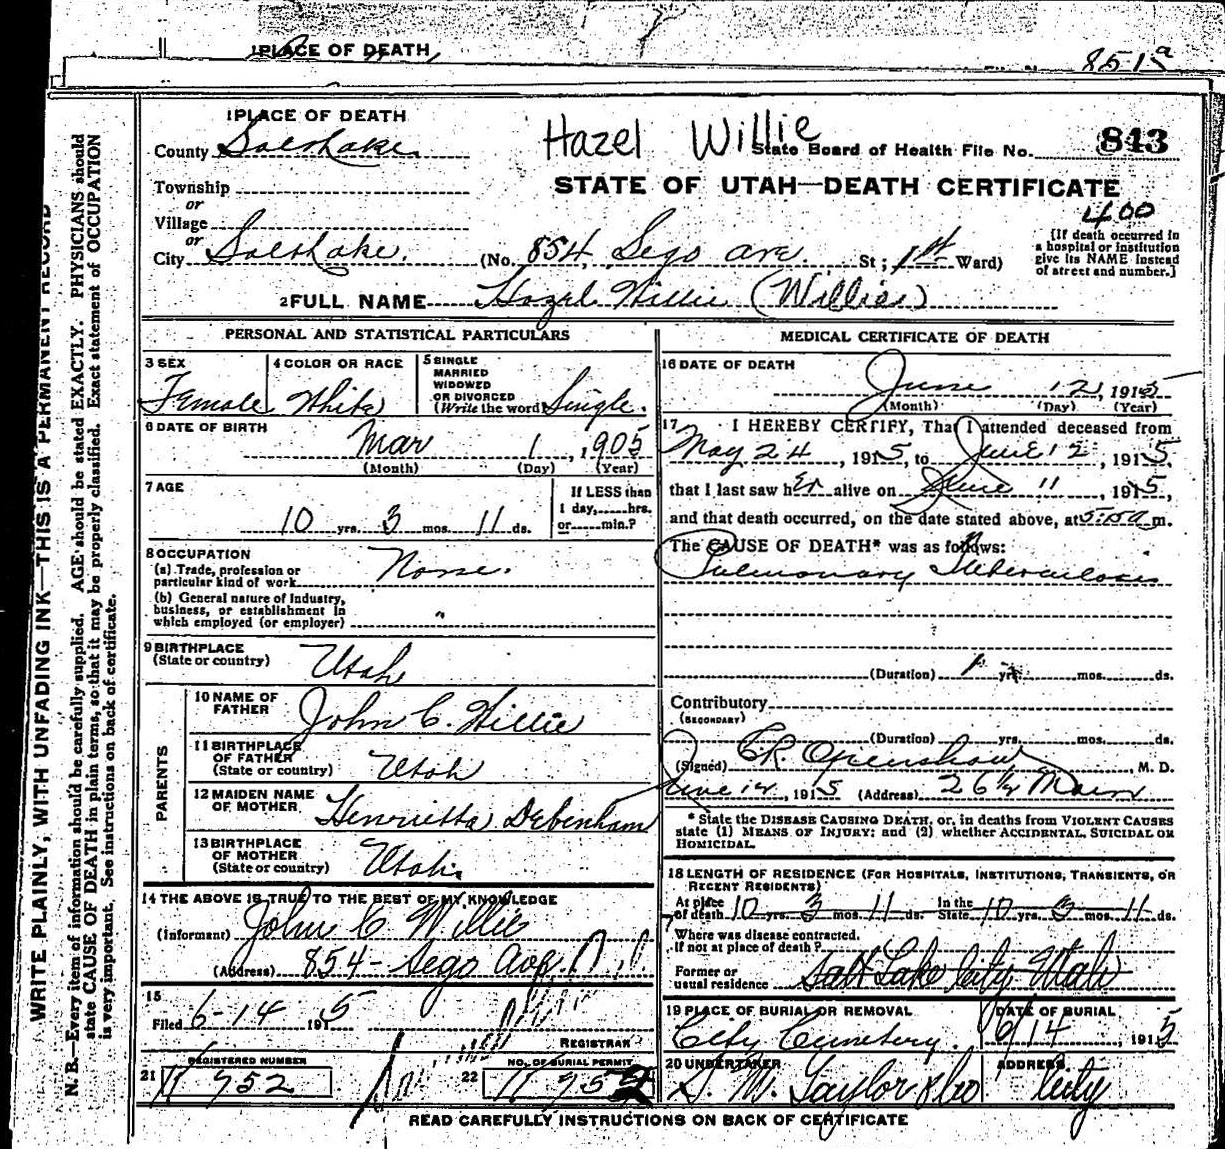 1 PLACE OF DEATH
851a
1 PLACE OF DEATH
County Salt Lake
Hazel Willie
State Board of Health File No. 843
Township
or
STATE OF UTAH—DEATH CERTIFICATE
400
Village
or
City Salt Lake. (No. 854, Sego ave. St; 1st Ward)
[If death occurred in
a hospital or institution
give its NAME instead
of street and number.]
2 FULL NAME Hazel Willie (Willie)
PERSONAL AND STATISTICAL PARTICULARS
3 SEX
Female
4 COLOR OR RACE
White
5 SINGLE
MARRIED
WIDOWED
OR DIVORCED
(Write the word) Single.
6 DATE OF BIRTH
Mar 1, 1905
(Month) (Day) (Year)
7 AGE
10 yrs. 3 mos. 11 ds.
If LESS than
1 day,......hrs.
or......min.?
8 OCCUPATION
(a) Trade, profession or
particular kind of work None.
(b) General nature of Industry,
business, or establishment in
which employed (or employer) "
9 BIRTHPLACE
(State or country) Utah
PARENTS
10 NAME OF
FATHER John C. Willie
11 BIRTHPLACE
OF FATHER
(State or country) Utah
12 MAIDEN NAME
OF MOTHER Henrietta Debenham
13 BIRTHPLACE
OF MOTHER
(State or country) Utah.
14 THE ABOVE IS TRUE TO THE BEST OF MY KNOWLEDGE
(Informant) John C Willie
(Address) 854- Sego Ave.
15
Filed 6-14 1915
REGISTRAR
REGISTERED NUMBER
21 952
NO. OF BURIAL PERMIT
22
MEDICAL CERTIFICATE OF DEATH
16 DATE OF DEATH
June 12, 1915
(Month) (Day) (Year)
17 I HEREBY CERTIFY, That I attended deceased from
May 24, 1915, to June 12, 1915,
that I last saw her alive on June 11, 1915,
and that death occurred, on the date stated above, at 5:15 a m.
The CAUSE OF DEATH* was as follows:
Pulmonary Tuberculosis
(Duration) 1 yrs. mos. ds.
Contributory
(SECONDARY)
(Duration) yrs. mos. ds.
(Signed) C.R. Openshaw, M. D.
June 12, 1915 (Address) 26 1/2 Main
* State the DISEASE CAUSING DEATH, or, in deaths from VIOLENT CAUSES
state (1) MEANS OF INJURY; and (2) whether ACCIDENTAL, SUICIDAL OR
HOMICIDAL.
18 LENGTH OF RESIDENCE (FOR HOSPITALS, INSTITUTIONS, TRANSIENTS, OR
RECENT RESIDENTS)
At place
of death 10 yrs. 3 mos. 11 ds.
In the
State 10 yrs. 3 mos. 11 ds.
Where was disease contracted.
If not at place of death?
Former or
usual residence Salt Lake City Utah
19 PLACE OF BURIAL OR REMOVAL
City Cemetery.
DATE OF BURIAL
6/14, 1915
20 UNDERTAKER
S. M. Taylor & Co
ADDRESS
City
READ CAREFULLY INSTRUCTIONS ON BACK OF CERTIFICATE
WRITE PLAINLY, WITH UNFADING INK—THIS IS A PERMANENT RECORD
N. B.—Every item of information should be carefully supplied. AGE should be stated EXACTLY. PHYSICIANS should
state CAUSE OF DEATH in plain terms, so that it may be properly classified. Exact statement of OCCUPATION
is very important. See instructions on back of certificate.